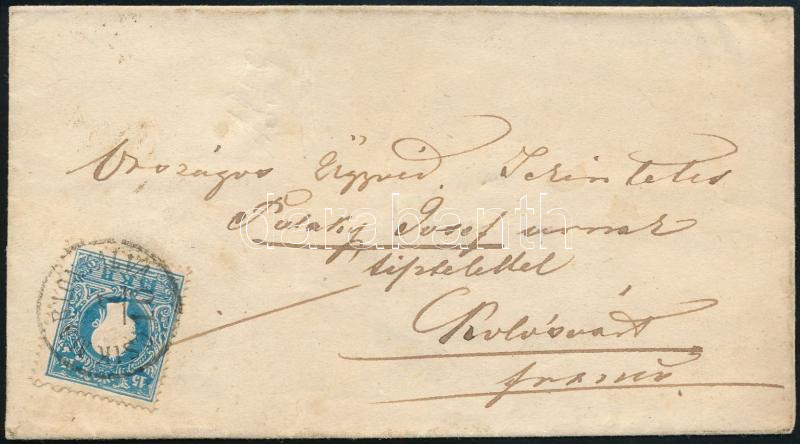 Országos Ügyvéd Tekintetes
Pataky Josef urnak
tisztelettel
Kolosvárt
franco
Darabanth
15